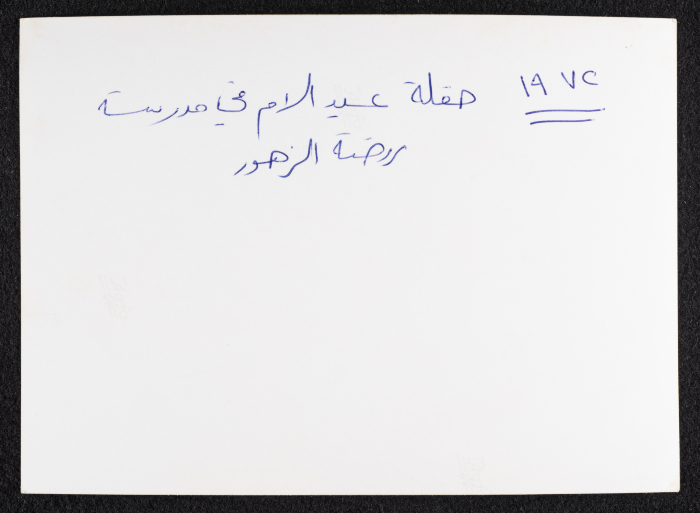 ١٩٧٢ حفلة عيد الام في مدرسة
روضة الزهور